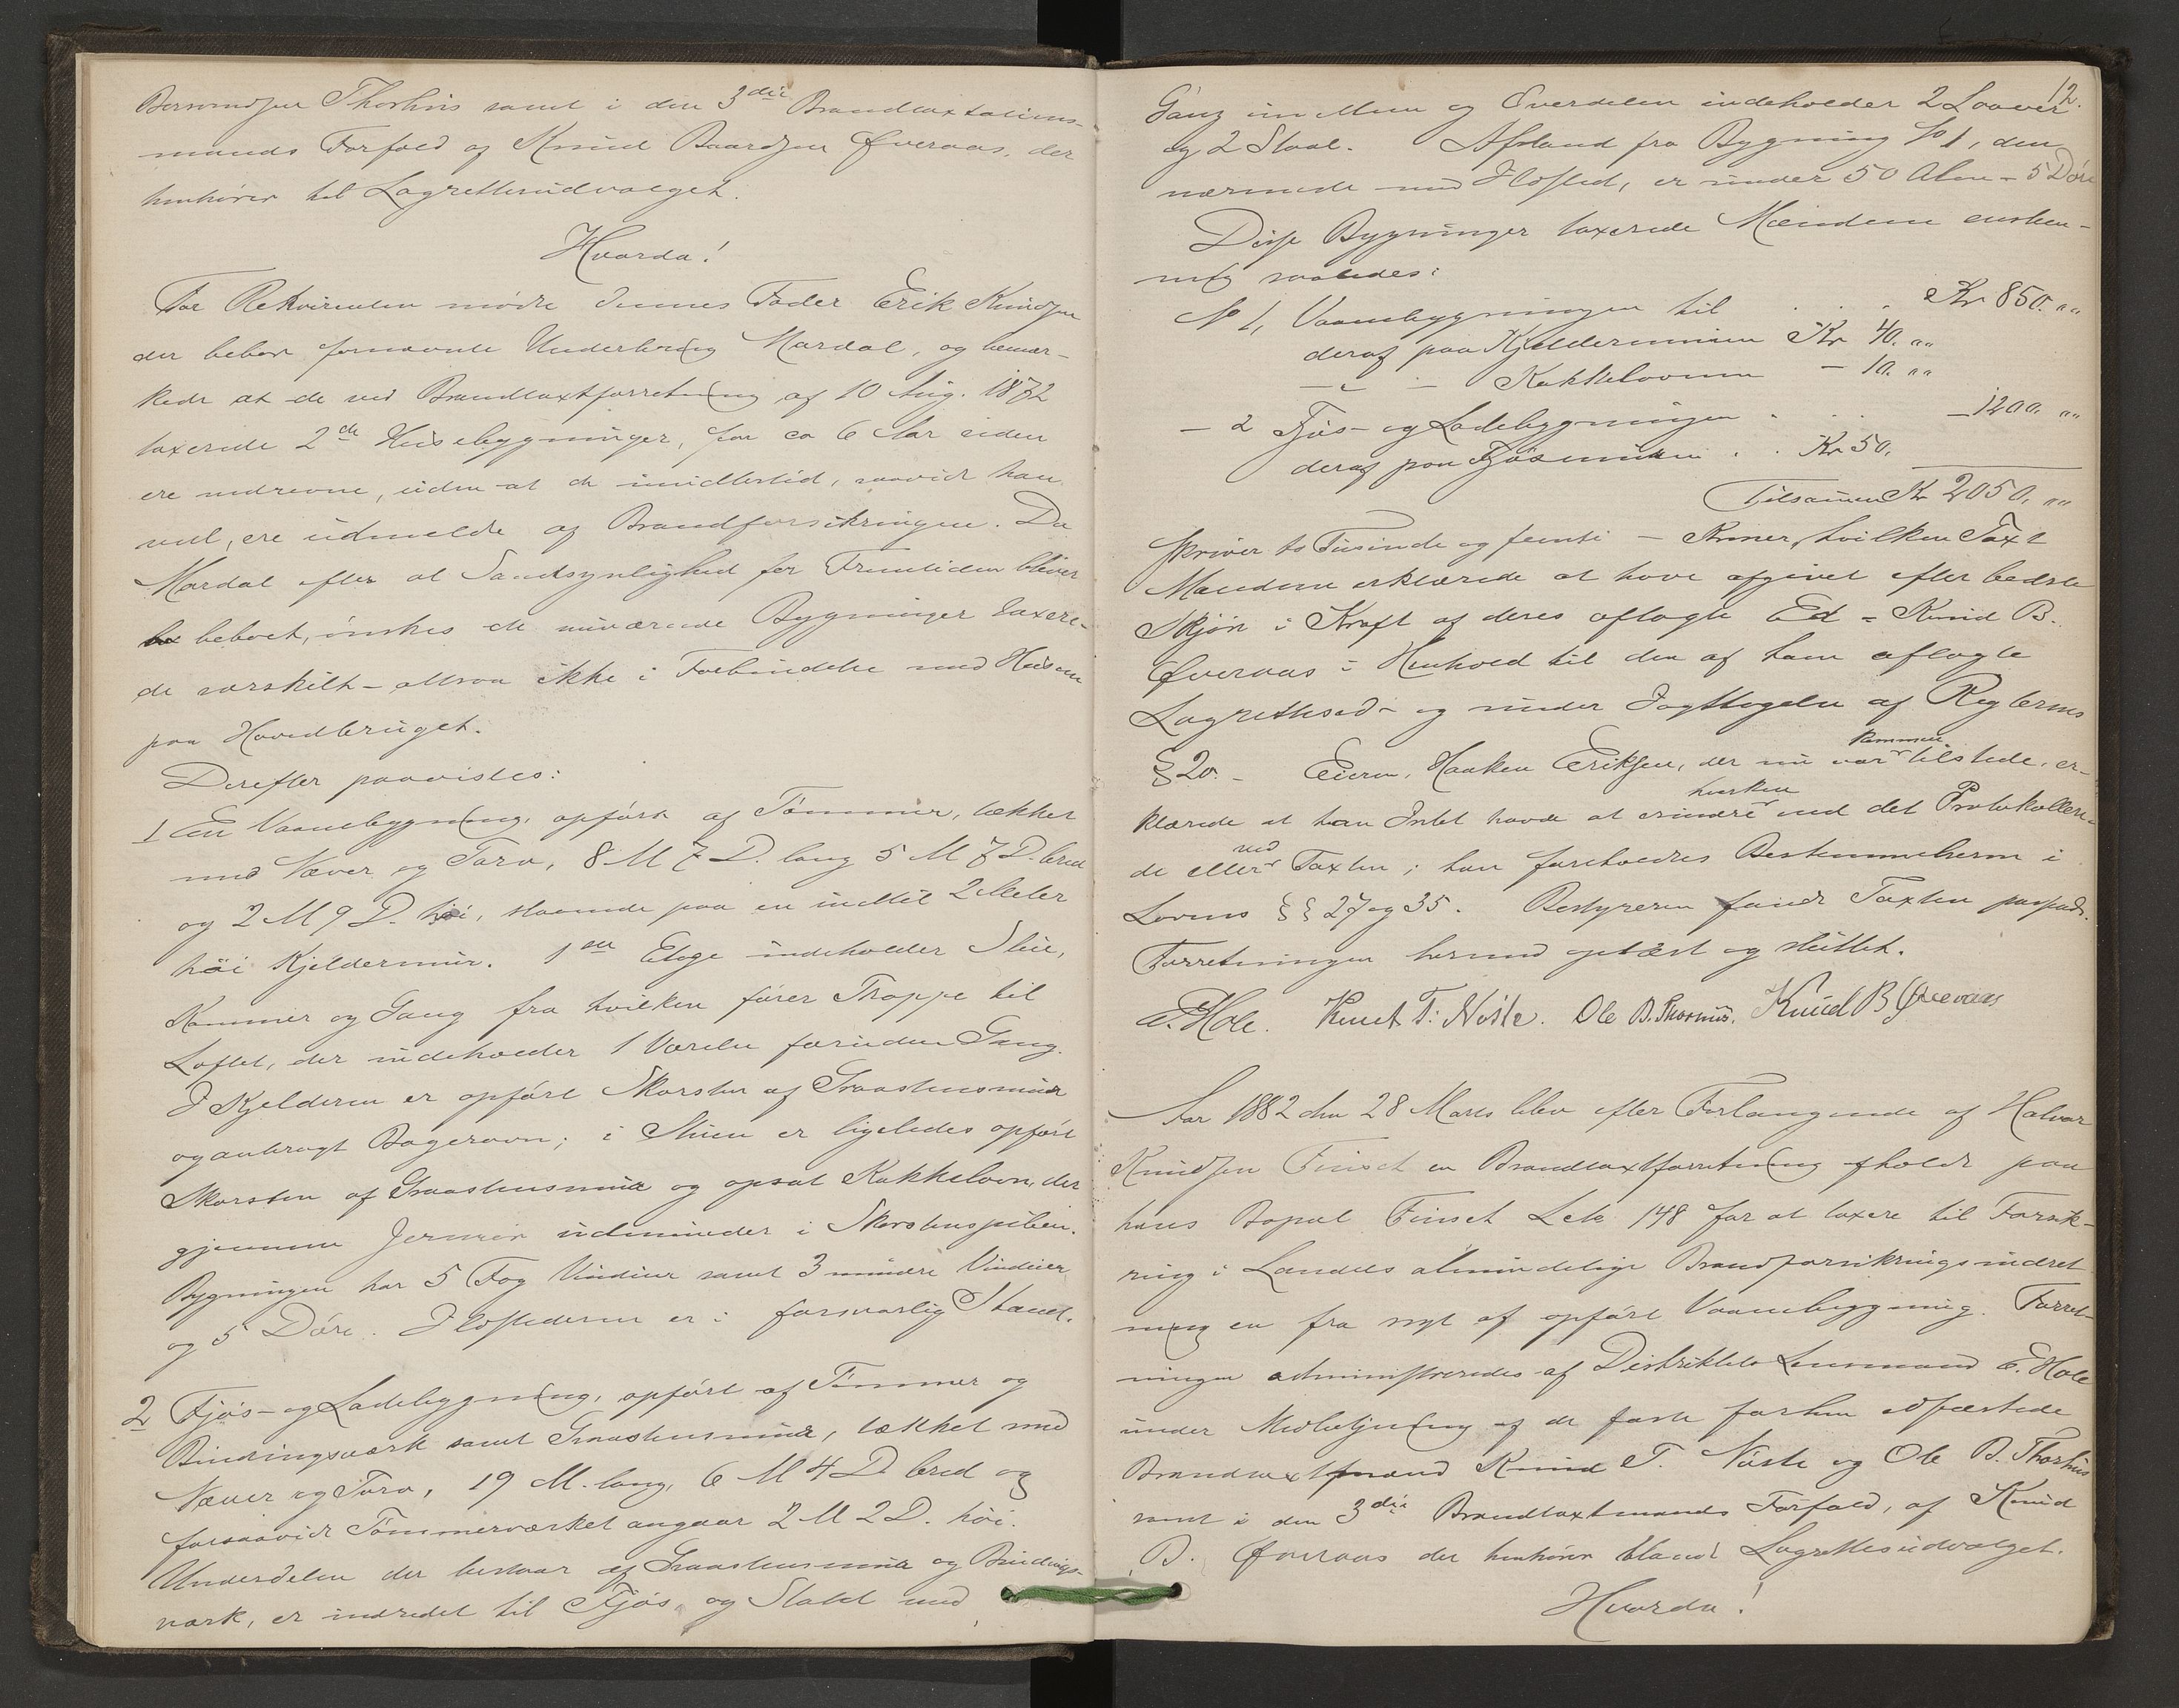 Berrendsen Thorhus samt i den 3die Brandtaxtations-
mands Forfald af Knud Baardsen Øveraas, der
henhører til Lagrettesudvalget.
Hvorda!
For Rekvirenten mødte dennes Fader Erik Knudsen
der beboer fornævnte Underbrug Mardal, og bemær-
kede at de ved Brandtaxtforretning af 10 Aug. 1872
taxerede 2de Husebygninger, for ca 6 Aar siden
ere nedrevne, uden at de imidlertid, saavidt han
ved, ere udmeldte af Brandforsikringen. Da
Mardal efter al Sandsynlighed for Fremtiden bliver
beboet, ønskes de nuværende Bygninger taxere-
de særskilt - altsaa ikke i Forbindelse med Husene
paa Hovedbruget.
Derefter paavistes:
1 En Vaanebygning, opført af Tømmer, tækket
med Næver og Torv, 8 M 7 D. lang 5 M 7 D. bred
og 2 M 9 D. høi, staaende paa en indtil 2 Meter
høi Kjeldermur. 1ste Etage indeholder Stue,
Kammer og Gang fra hvilken fører Trappe til
Loftet, der indeholder 1 Værelse foruden Gang.
I Kjelderen er opført Skorsten af Graastensmur
og anbragt Bagerovn; i Stuen er ligeledes opført
Skorsten af Graastensmur og opsat Kakkelovn, der
gjennem Jernrør udmunder i Skorstenspiben.
Bygningen har 5 Fag Vinduer samt 3 mindre Vinduer
og 5 Døre. Ildstederne er i forsvarlig Stand.
2 Fjøs- og Ladebygning, opført af Tømmer og
Bindingsværk samt Graastensmur, tækket med
Næver og Torv, 19 M. lang, 6 M 4 D bred og
forsaavidt Tømmerværket angaar 2 M 2 D. høi.
Underdelen der bestaar af Graastensmur og Bindings-
værk, er indredet til Fjøs og Stald med
12.
Gang imellem og Overdelen indeholder 2 Laaver
og 2 Staal. Afstand fra Bygning № 1, den
nærmeste med Ildsted, er under 50 Alen - 5 Døre
Disse Bygninger taxerede Mændene enstem-
mig saaledes:
№ 1, Vaanebygningen til . . . Kr 850. ""
deraf paa Kjeldermuren Kr 40. ""
— " — Kakkelovnen - 10. ""
- 2 Fjøs- og Ladebygningen . . . - 1200. ""
deraf paa Fjøsmuren . . Kr 50.
Tilsammen Kr 2050, ""
skriver to Tusinde og femti - Kroner, hvilken Taxt
Mændene erklærede at have afgivet efter bedste
Skjøn i Kraft af deres aflagte Ed - Knud B.
Øveraas i Henhold til den af ham aflagte
Lagrettesed - og under Iagttagelse af Reglernes
§ 20. - Eieren, Haaken Eriksen, der nu var kommen tilstede, er-
klærede at han Intet havde at erindre hverken ved det Protokollere-
de eller ved Taxten; han foreholdtes Bestemmelserne i
Lovens §§ 27 og 35. Bestyreren fandt Taxten passende.
Forretningen hermed oplæst og sluttet.
E. Hole. Knut T: Nöste. Ole B. Thorhus. Knud B Øveraas
Aar 1882 den 28 Marts blev efter Forlangende af Halvor
Knudsen Finset en Brandtaxtforretning afholdt paa
hans Bopæl Finset Lete 148 for at taxere til Forsik-
ring i Landets almindelige Brandforsikringsindret
ning en fra nyt af opført Vaanebygning. Forret-
ningen administreredes af Distriktets Lensmand E. Hole
under Medbetjening af de faste forhen edfæstede
Brandtaxtmænd Knud T. Nöste og Ole B. Thorhus
samt i den 3die Brandtaxtmands Forfald, af Knud
B. Øveraas der henhører blandt Lagrettesudvalget.
Hvorda!